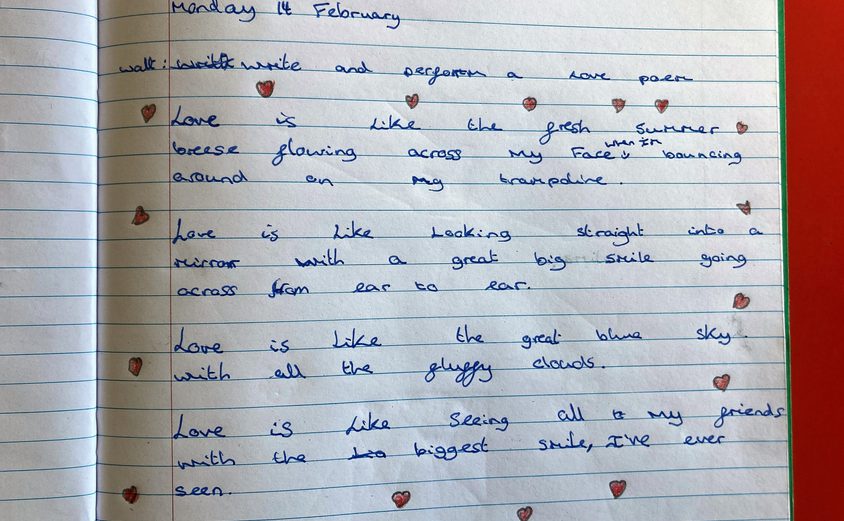 Monday 14 February
walt: write and perform a love poem
Love is like the fresh summer
when I'm
breese flowing across my Face bouncing
around on my trampoline.
Love is like Looking straight into a
mirror with a great big smile going
across from ear to ear.
Love is like the great blue sky
with all the fluffy clouds.
Love is like seeing all my friends
with the biggest smile, I've ever
seen.